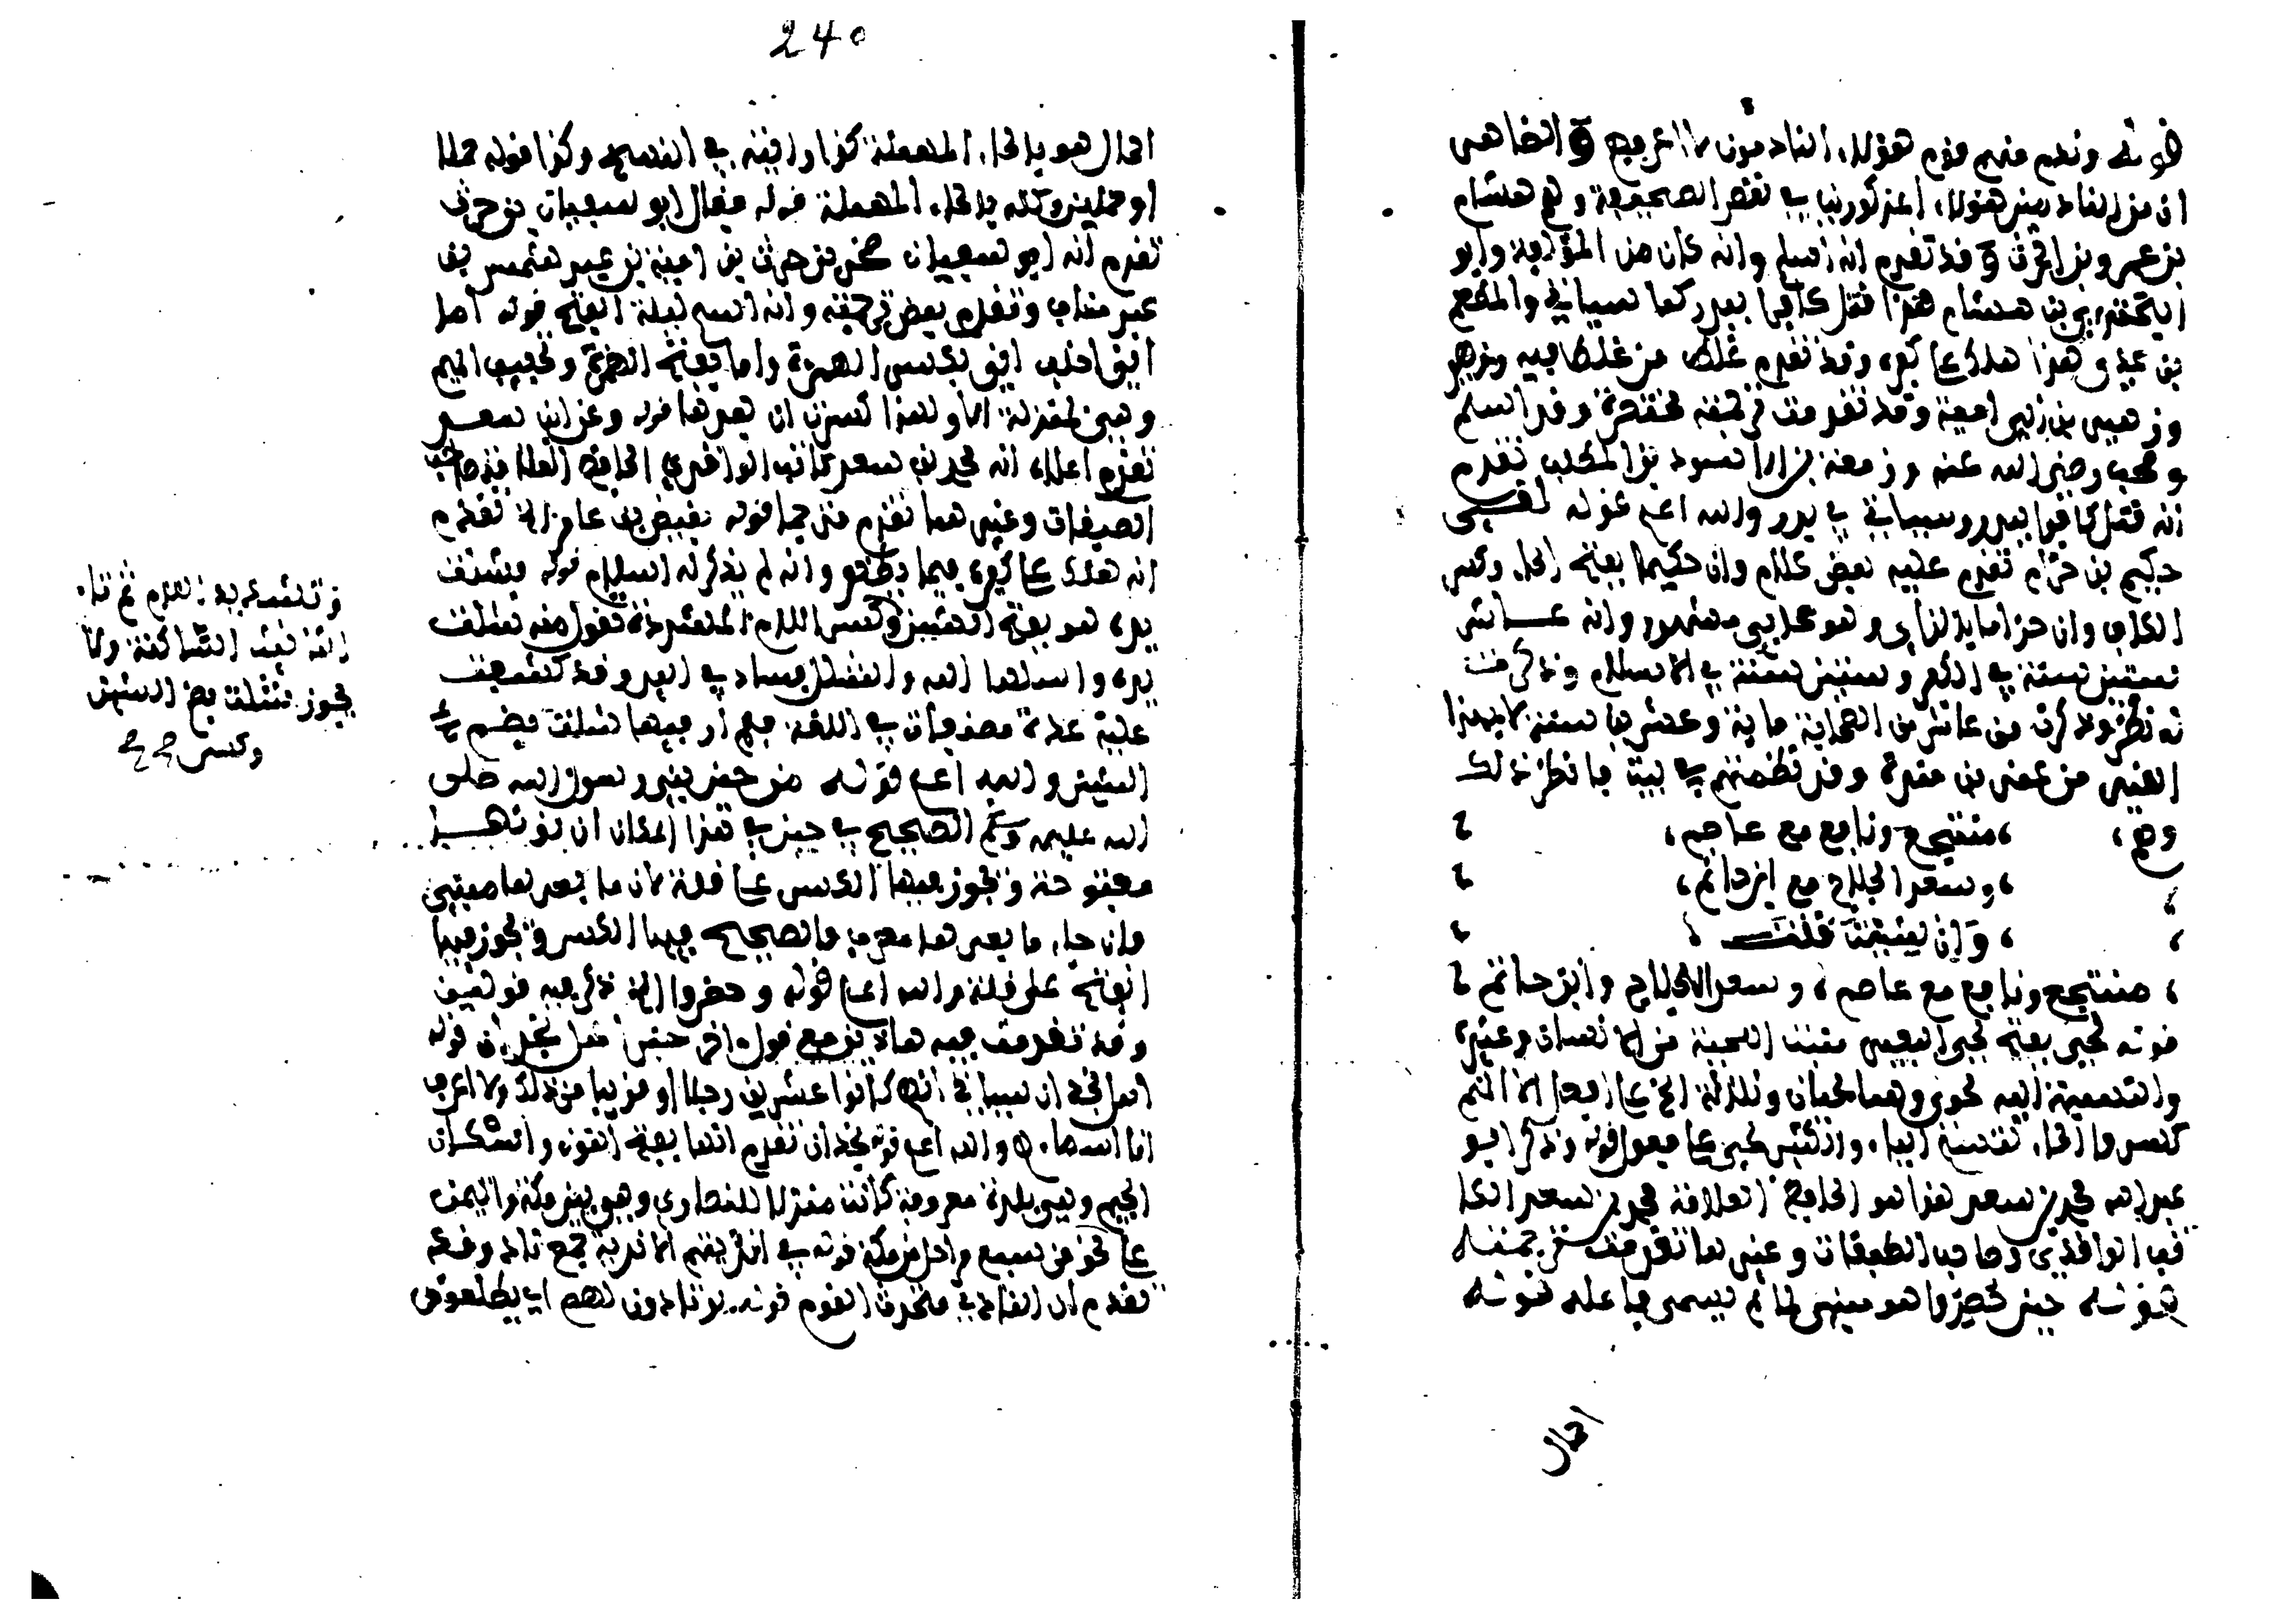 قوله وندم منهم قوم هؤلاء النادمون لا اعرفهم والظاهر
ان من النادمين هؤلاء المذكورين في نقض الصحيفة وهم هشام
بن عمرو بن الحرث وقد تقدم انه اسلم وانه كان من المؤلفة وابو
البختري بن هشام هذا قتل كافرا ببدر كما سياتي والمطعم
بن عدي هذا هلك على كفره وقد تقدم غلط من غلط فيه وزهير
وزهير بن ابي امية وقد تقدمت ترجمته مختصرة وقد اسلم
وصحب رضي الله عنه وزمعة بن الاسود بن المطلب تقدم
انه قتل كافرا ببدر وسياتي في بدر والله اعلم قوله لقي
حكيم بن حزام تقدم عليه بعض كلام وان حكيما بفتح الحاء وكسر
الكاف وان حزاما بالزاي وهو صحابي مشهور وانه عاش
ستين سنة في الكفر وستين سنة في الاسلام وذكرت
له نظراء وذكرت من عاش من الصحابة ماية وعشرين سنة لا بهذا
القيد من غير بن مندة وقد نظمتهم في بيت فانظر ذلك
وهو، ، منتجع ونافع مع عاصم،
، وسعد الجلاح مع ابن حاتم،
، وان يشبت قلت
، منتجع ونافع مع عاصم، وسعد الجلاح وابن حاتم
قوله لحي بفتح لحي البعير منبت اللحية من الانسان وغيره
والنسبة اليه لحوي وهما لحيان وثلاثة الح على افعل الا انهم
كسروا الحاء لتسلم الياء والكثير لحي على فعول قوله وذكر ابو
عبد الله محمد بن سعد هذا هو الحافظ العلامة محمد بن سعد الكا
تب الواقدي صاحب الطبقات وغيرها تقدمت ترجمته
قوله حين حصروا هو مبني لما لم يسم فاعله قوله
احمال
240
احمال هو بالحاء المهملة كذا رايته في النسخ وكذا قوله حملا
او حملين وكله بالحاء المهملة قوله فقال ابو سفيان بن حرب
تقدم انه ابو سفيان صخر بن حرب بن امية بن عبد شمس بن
عبد مناف وتقدم بعض ترجمته وانه اسلم ليلة الفتح قوله اما
اني احلف اني بكسر الهمزة واما بفتح الهمزة وتخفيف الميم
وهي بمنزلة الا ولهذا كسرت ان بعدها قوله وعن ابن سعد
تقدم اعلاه انه محمد بن سعد كاتب الواقدي الحافظ العلامة صاحب
الطبقات وغيرها تقدم مترجما قوله بغيض بن عامر الخ تقدم
انه هلك على كفره فيما يظهر وانه لم يذكر له اسلام قوله فشلت
يده هو بفتح الشين وكسر اللام المشددة تقول منه شللت
يده واشلها الله والشلل فساد في اليد وقد كشفت
عليه عدة مصنفات في اللغة فلم ار فيها شلت بضم
الشين والله اعلم قوله من حصر بني رسول الله صلى
الله عليه وسلم الصحيح في حين في هذا المكان ان نونها
مفتوحة ويجوز فيها الكسر على قلة لان ما بعدها مبني
وان جاء ما بعدها معربا فالصحيح فيها الكسر ويجوز فيها
الفتح على قلة والله اعلم قوله وحصروا الخ ذكر فيه قولين
وقد تقدمت فيه هاذين مع قول اخر حين قوله نجران قوله
اهل نجران سياتي انهم كانوا عشرين رجلا او قريبا من ذلك ولا اعرف
انا اسماءهم والله اعلم قوله نجران تقدم انها بفتح النون واسكان
الجيم وهي بلدة معروفة كانت منزلا للنصارى وهي بين مكة واليمن
على نحو من سبع مراحل من مكة قوله في انديتهم الاندية جمع نادي وقد
تقدم ان النادي متحدث القوم قوله يرتادون لهم اي يطلعون
وتشديد اللام ثم تاء
التانيث الساكنة ولا
يجوز شلت بضم الشين
وكسر صح صح